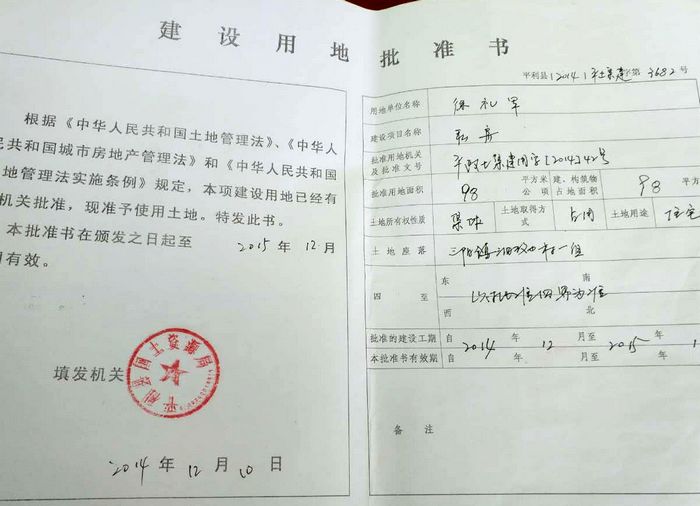 建设用地批准书
根据《中华人民共和国土地管理法》、《中华人
民共和国城市房地产管理法》和《中华人民共和国
地管理法实施条例》规定，本项建设用地已经有
机关批准，现准予使用土地。特发此书。
本批准书在颁发之日起至 2015 年 12 月
有效。
填发机关
平利县国土资源局
2014 年 12 月 10 日
平利县(2014)平土集建字第 3682 号
用地单位名称 徐礼军
建设项目名称
批准用地机关及批准文号 平政土集建用字[2014]42号
批准用地面积 98 平方米 公顷 建、构筑物占地面积 98 平方
土地所有权性质 集体 土地取得方式 占用 土地用途 住宅
土地座落 三阳镇 村一组
四至 东 南 西 北 以批准四界为准
批准的建设工期 自 2014 年 12 月至 2015 年 1
本批准书有效期 自 年 月至 年
备注